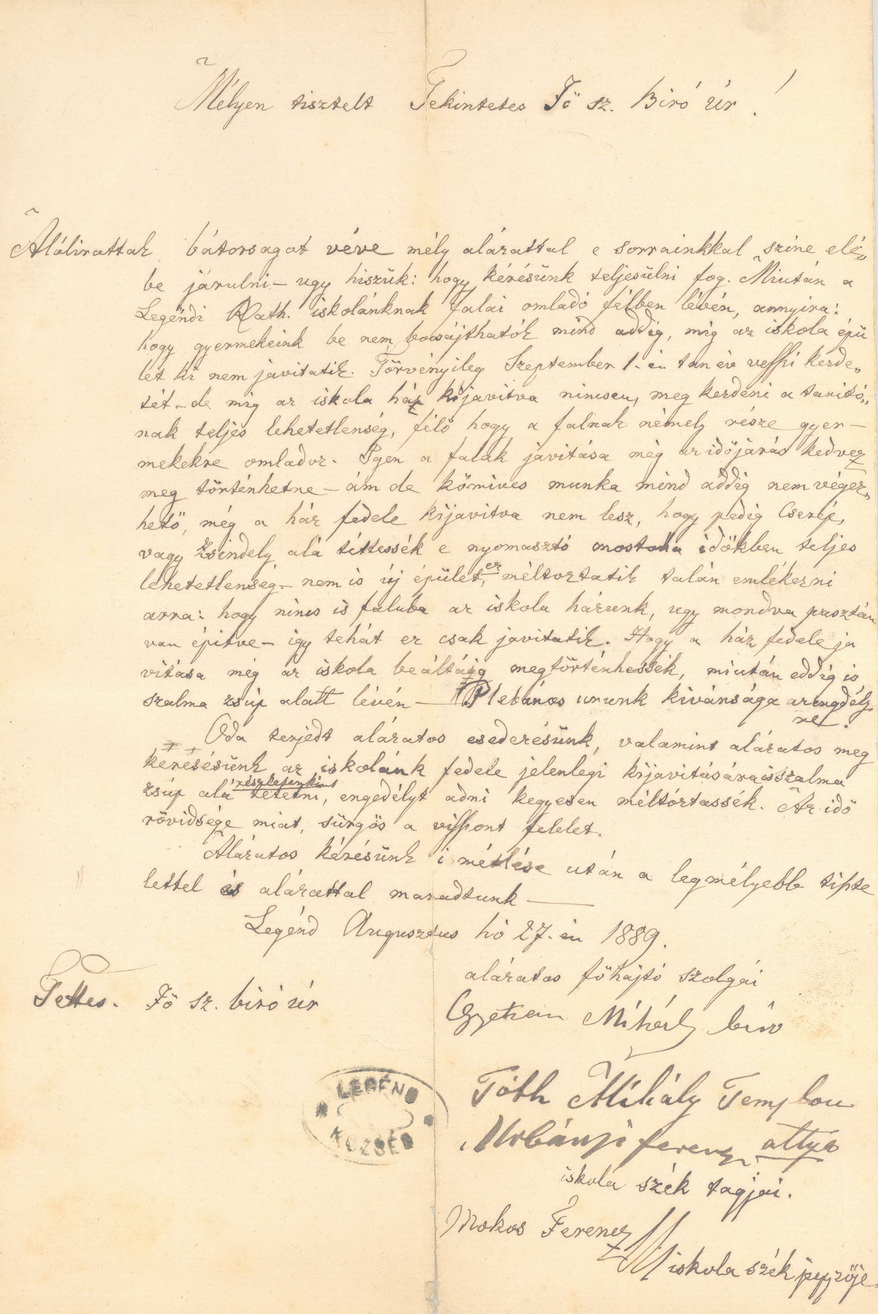 Mélyen tisztelt Tekintetes Fő sz. Biró úr!
Alólirattak bátorságot véve mély alázattal e sorrainkkal szine elé-
be járulni – ugy hiszük: hogy kérésünk teljesülni fog. Miután a
Legéndi Kath. iskolánknak falai omladó félben lévén, annyira:
hogy gyermekeink be nem bocsájthatók mind addig, mig az iskola épü
let ki nem javitatik. Törvényileg Szeptember 1-én tan év veszi kezde-
tét – de mig az iskola ház kijavitva nincsen, meg kezdeni a tanitó-
nak teljes lehetetlenség, félő hogy a falnak némely része gyer-
mekekre omladoz. Igen a falak javitása még az időjárás kedvez
meg történhetne – ám de kőmives munka mind addig nem végez-
hető, még a ház fedele kijavitva nem lesz, hogy pedig Cserép,
vagy zsindely alá tittessék e nyomasztó mostoha időkben teljes
lehetetlenség – nem is új épület, ez méltoztatik talán emlékezni
arra: hogy nincs is faluba az iskola házunk, ugy mondva pusztán
van épitve – igy tehát ez csak javitatik. Hogy a ház fedele ja
vitása még az iskola beáltáig megtörténhessék, miután eddig is
szalma zsúp alatt lévén – Plebános urunk kivánsága az engdély
re.
Oda terjedt alázatos esedezésünk, valamint alázatos meg
kérésésünk az iskolánk fedele jelenlegi kijavitására is szalma
zsúp alá részlefenként tétetni, engedélyt adni kegyesen méltóztassék. Az idő
rövidsége miat, sürgős a viszont felelet.
Alázatos kérésünk i métlése után a legmélyebb tiszte
lettel és alázattal maradtunk –
Legénd Augusztus hó 27-én 1889.
alázatos főhajtó szolgái
Tettes. Fő sz. biró úr
Mihály biró
LEGÉND
KÖZSÉG
Tóth Mihály Templom
Urbányi ferencz attya
iskola szék tagjai.
Mokos Ferencz
iskola szék jegyzője